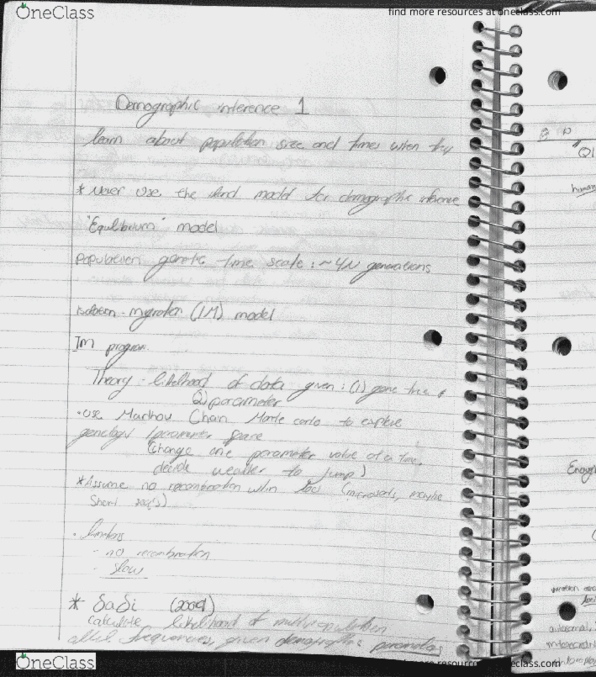 OneClass
find more resources at oneclass.com
Demographic inference 1
learn about population size and times when they
* never use the island model for demographic inference
"Equilibrium" model
population genetic time scale : ~4N generations
isolation-migration (IM) model
IM program
Theory - likelihood of data given : (1) gene tree &
(2) parameter
• use Markov Chain Monte carlo to explore
genealogy / parameter space
(change one parameter value at a time,
decide weather to jump)
* Assume no recombination w/in loci (microsats, maybe
short seq's)
• limits
- no recombination
- slow
* δaδi (2009)
calculate likelihood of multipopulation
allel frequencies, given demographic parameters
OneClass
find more resources at oneclass.com
Q1
human